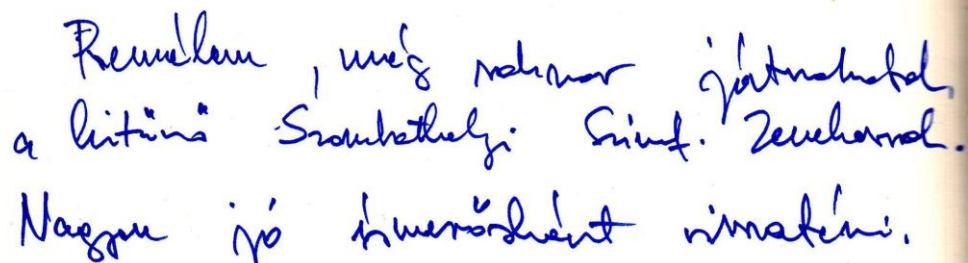 Remélem, még sokszor játszhatok
a kitűnő Szombathelyi Szimf. Zenekarral.
Nagyon jó ismerősként visszatérni.